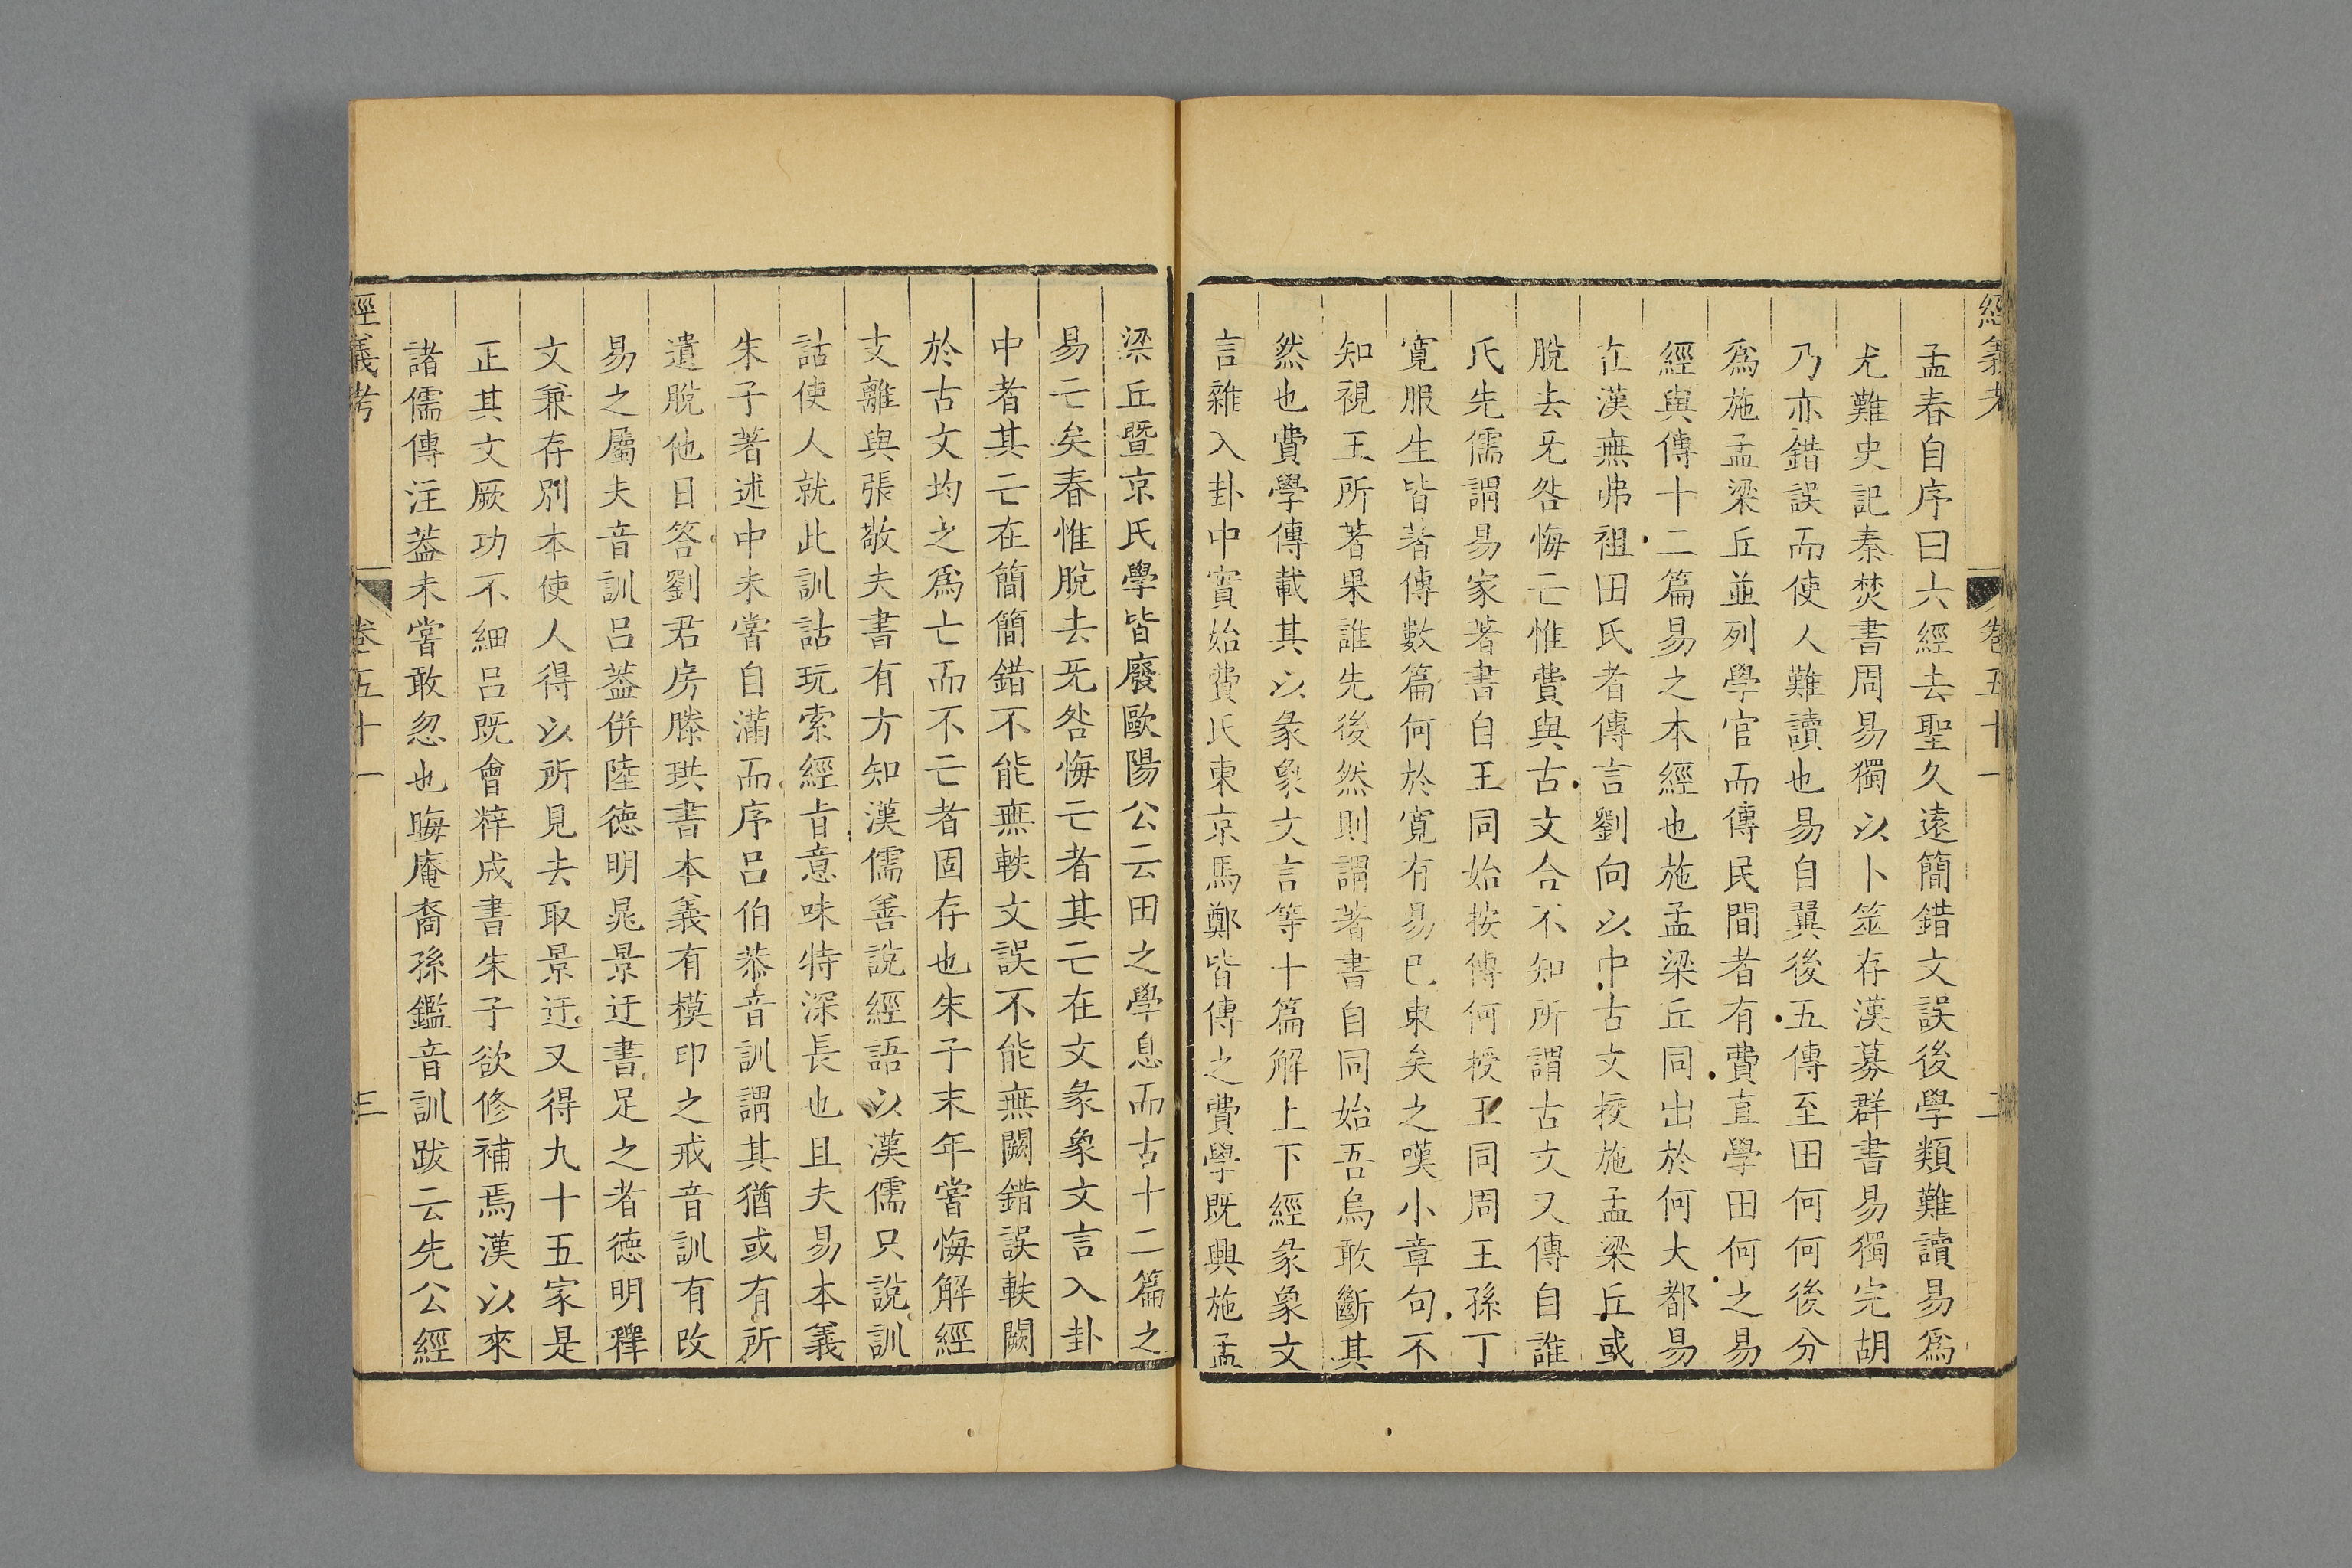 經義考
卷五十一
二
孟春自序曰六經去聖久遠簡錯文誤後學類難讀易爲
尤難史記秦焚書周易獨以卜筮存漢募群書易獨完胡
乃亦錯誤而使人難讀也易自異後五傳至田何何後分
爲施孟梁丘並列學官而傳民間者有費直學田何之易
經與傳十二篇易之本經也施孟梁丘同出於何大都易
在漢無弗祖田氏者傳言劉向以中古文挍施孟梁丘或
脫去无咎悔亡惟費與古文合不知所謂古文又傳自誰
氏先儒謂易家著書自王同始按傳何授王同周王孫丁
寬服生皆著傳數篇何於寬有易已東矣之嘆小章句不
知視王所著果誰先後然則謂著書自同始吾烏敢斷其
然也費學傳載其以彖象文言等十篇解上下經彖象文
言雜入卦中實始費氏東京馬鄭皆傳之費學既興施孟
梁丘暨京氏學皆廢歐陽公云田之學息而古十二篇之
易亡矣春惟脫去无咎悔亡者其亡在文彖象文言入卦
中者其亡在簡簡錯不能無軼文誤不能無闕錯誤軼闕
於古文均之爲亡而不亡者固存也朱子末年嘗悔解經
支離與張敬夫書有方知漢儒善說經語以漢儒只說訓
詁使人就此訓詁玩索經旨意味特深長也且夫易本義
朱子著述中未嘗自滿而序呂伯恭音訓謂其猶或有所
遺脫他日答劉君房滕珙書本義有模印之戒音訓有改
易之屬夫音訓呂葢併陸德明晁景迂書足之者德明釋
文兼存別本使人得以所見去取景迂又得九十五家是
正其文厥功不細呂既會粹成書朱子欲修補焉漢以來
諸儒傳注葢未嘗敢忽也晦庵裔孫鑑音訓跋云先公經
經義考
卷五十一
三